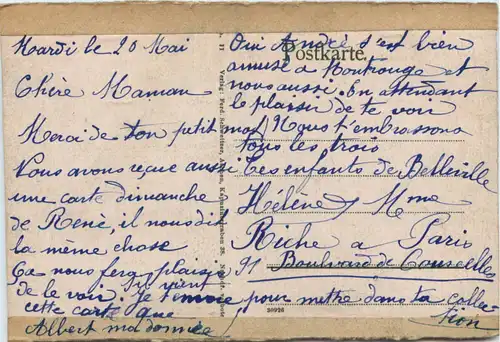 Mardi le 20 Mai
Chère Maman
Merci de ton petit mot
Vous avons reçue aussi
une carte dimanche
de René, il nous dit
la même chose
Ça nous fera plaisir
de le voir s'il vient
Je t'envoie pour mettre dans ta collec
tion
cette carte que
Albert m'a donnée
Postkarte
Oui André s'est bien
amusé à Montrouge et
nous aussi. En attendant
le plaisir de te voir
Nous t'embrassons
tous les trois
Les enfants de Belleville
Hélène
Mme
Riche à Paris
91 Boulevard de Courcelles
Verlag: Ferd. Schweitzer, Aachen,
30926